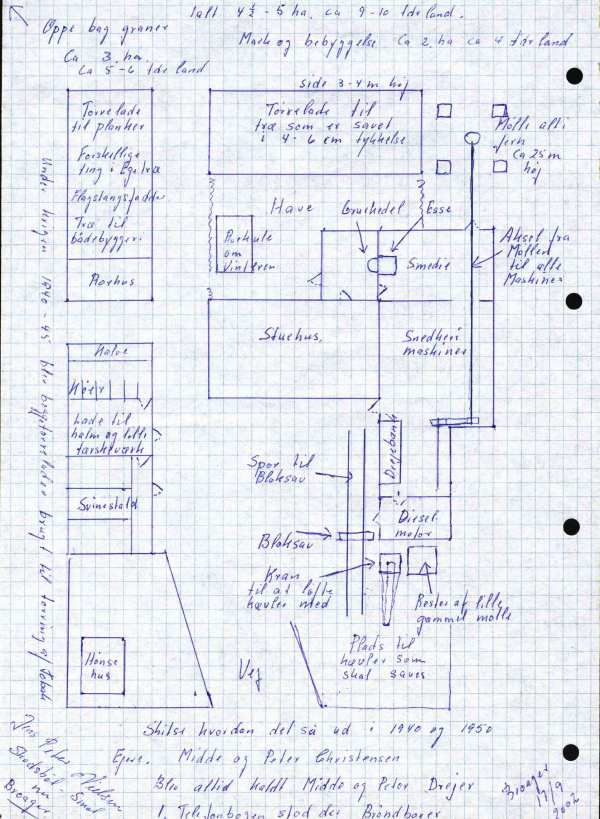 Ialt 4½-5 ha. ca 9-10 tdr land.
Oppe bag graner
Mark og bebyggelse Ca 2. ha ca 4 tdr land
Ca 3. ha.
Ca 5-6 tdr land
side 3-4 m høj
Tørrelade
til planker
Forskellige
ting i Egetræ
Flagstangs
Træ til
bådebyggeri
Aarhus
Tørrelade til
træ som er savet
i 4-6 cm tykkelse
Mølle alti
jern
Ca 25 m
høj
Have
Gruekedel
Esse
Aurikule
om
Vinteren
Smedie
Aksel fra
Møllen
til alle
Maskiner
Stuehus.
Snedkeri
maskiner
Kalve
Køer
Lade til
halm og lille
tærskeværk
Svinestald
Drejebænk
Spor til
Bloksav
Diesel
motor
Bloksav
Kran
til at løfte
kævler med
Rester af lille
gammel mølle
Plads til
kævler som
skal saves
Hønse
hus
Vej
Under krigen 1940-45 blev begge tørrelader brugt til tørring af tobak
Skitse hvordan det så ud i 1940 og 1950
Ejere. Midde og Peter Christensen
Blev altid kaldt Midde og Peter Drejer
I. Telefonbogen stod der Brøndborer
Jens Peter Nielsen
Skodsbøl - Smøl
nu
Broager
Broager
17/9
2002